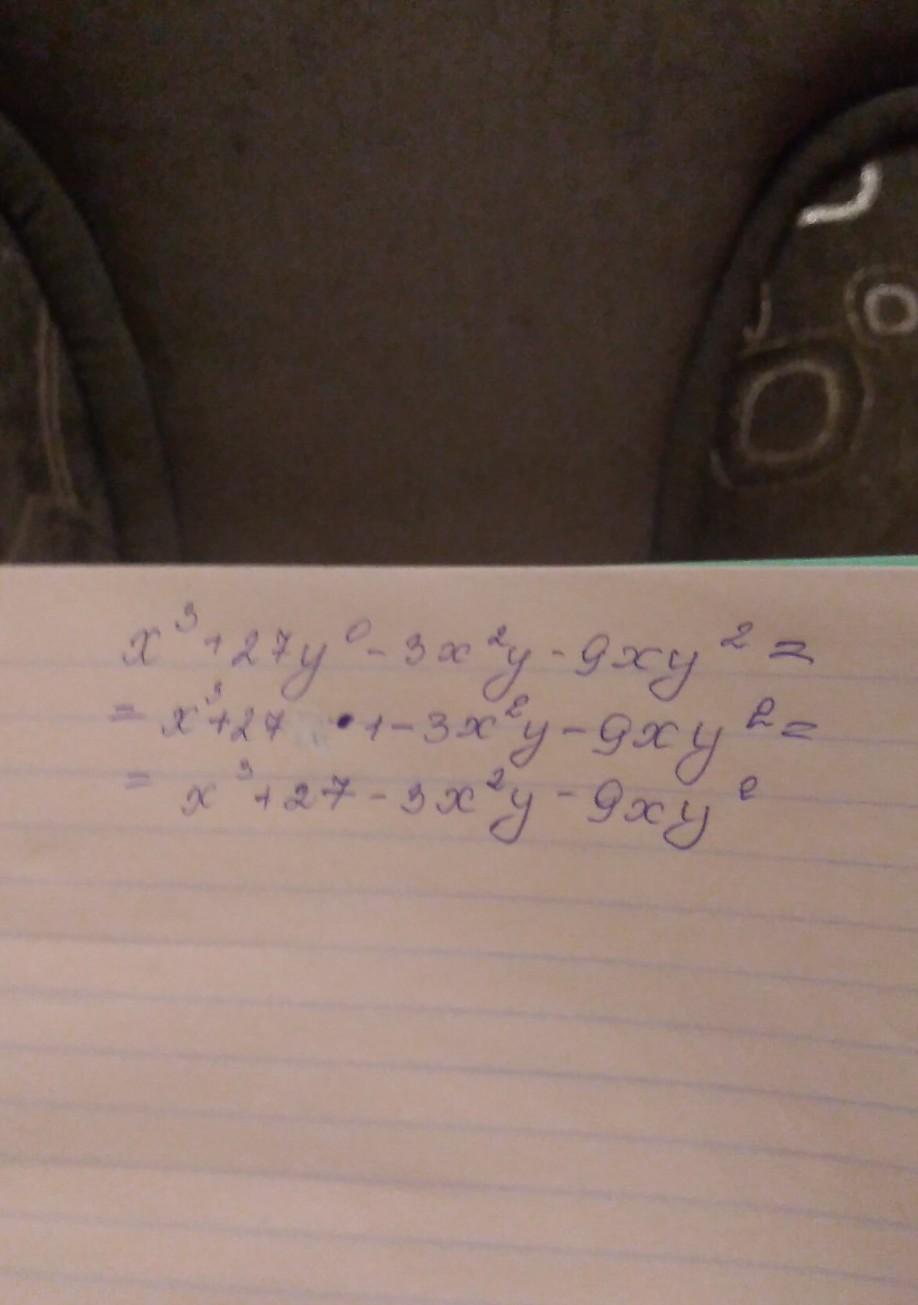 x³+27y⁰-3x²y-9xy²=
=x³+27•1-3x²y-9xy²=
=x³+27-3x²y-9xy²